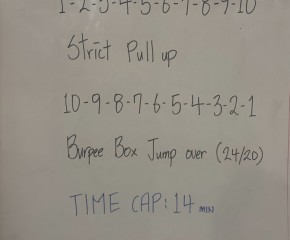 1-2-3-4-5-6-7-8-9-10
Strict Pull up
10-9-8-7-6-5-4-3-2-1
Burpee Box Jump over (24/20)
TIME CAP: 14 MIN